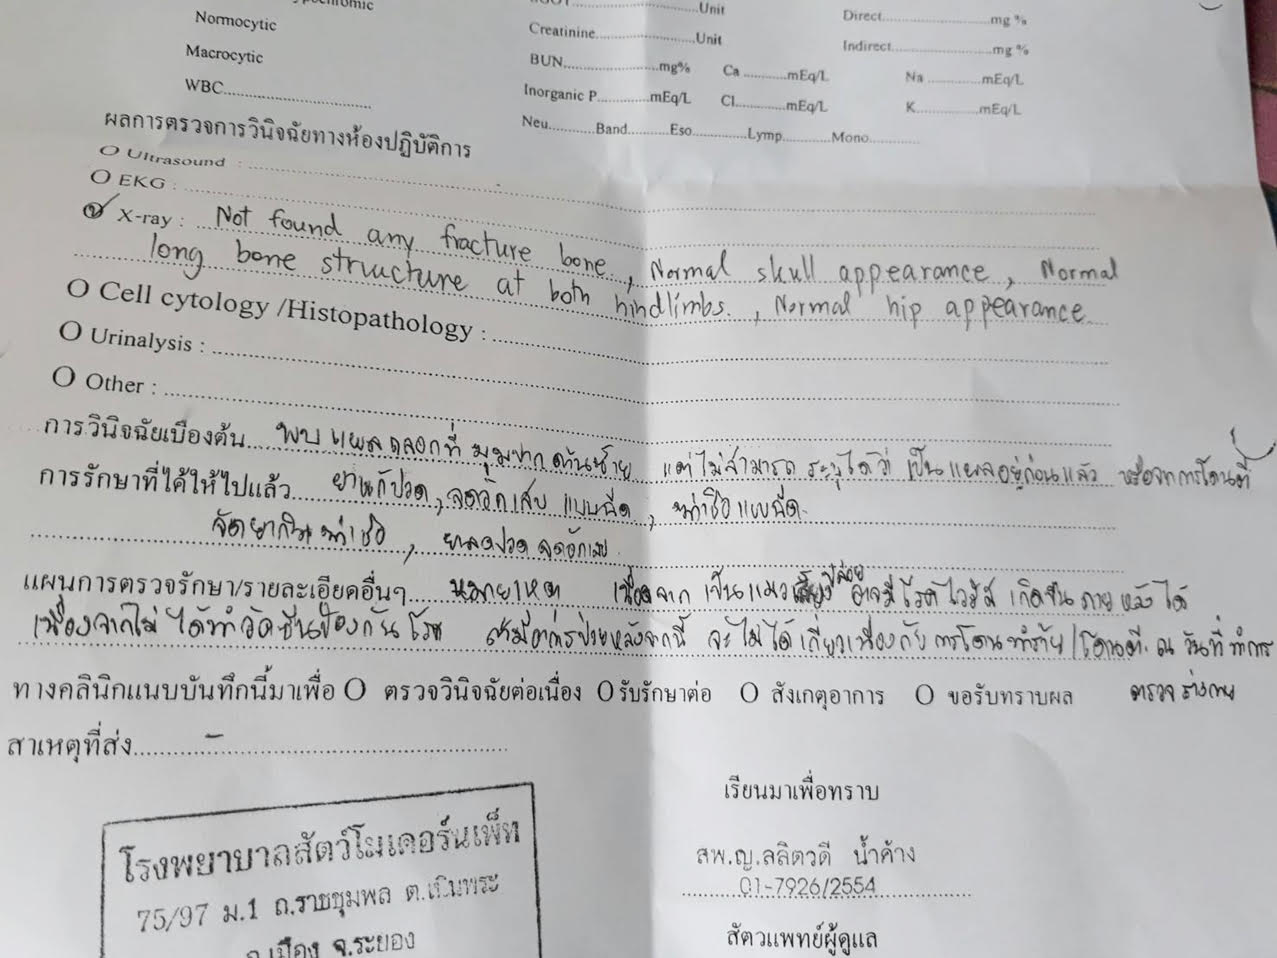 Normocytic
Macrocytic
WBC
Unit
Creatinine Unit
BUN mg%
Inorganic P mEq/L
Ca mEq/L
Cl mEq/L
Direct mg %
Indirect mg %
Na mEq/L
K mEq/L
Neu Band Eso Lymp Mono
ผลการตรวจการวินิจฉัยทางห้องปฏิบัติการ
O Ultrasound :
O EKG :
X-ray : Not found any fracture bone , Normal skull appearance , Normal
long bone structure at both hindlimbs. , Normal hip appearance
O Cell cytology /Histopathology :
O Urinalysis :
O Other :
การวินิจฉัยเบื้องต้น พบแผลถลอกที่มุมปากด้านซ้าย แต่ไม่สามารถระบุได้ว่า เป็นแผลอยู่ก่อนแล้ว หรือจากการโดนตี
การรักษาที่ได้ให้ไปแล้ว ยาแก้ปวด, ลดอักเสบ แบบฉีด , ฆ่าเชื้อแบบฉีด
จัดยากินฆ่าเชื้อ , ยาลดปวด ลดอักเสบ
แผนการตรวจรักษา/รายละเอียดอื่นๆ หมายเหตุ เนื่องจาก เป็นแมวเลี้ยงปล่อย อาจมีโรคไวรัส เกิดขึ้น ภายหลังได้
เนื่องจากไม่ได้ทำวัคซีนป้องกันโรค หลังจากนี้ จะไม่ได้เกี่ยวเนื่องกับการโดนทำร้าย/โดนตี ณ วันที่ทำการ
ตรวจร่างกาย
ทางคลินิกแนบบันทึกนี้มาเพื่อ O ตรวจวินิจฉัยต่อเนื่อง O รับรักษาต่อ O สังเกตุอาการ O ขอรับทราบผล
สาเหตุที่ส่ง -
เรียนมาเพื่อทราบ
สพ.ญ.ลลิตวดี น้ำค้าง
01-7926/2554
สัตวแพทย์ผู้ดูแล
โรงพยาบาลสัตว์โมเดอร์นเพ็ท
75/97 ม.1 ถ.ราชชุมพล ต.เนินพระ
อ.เมือง จ.ระยอง